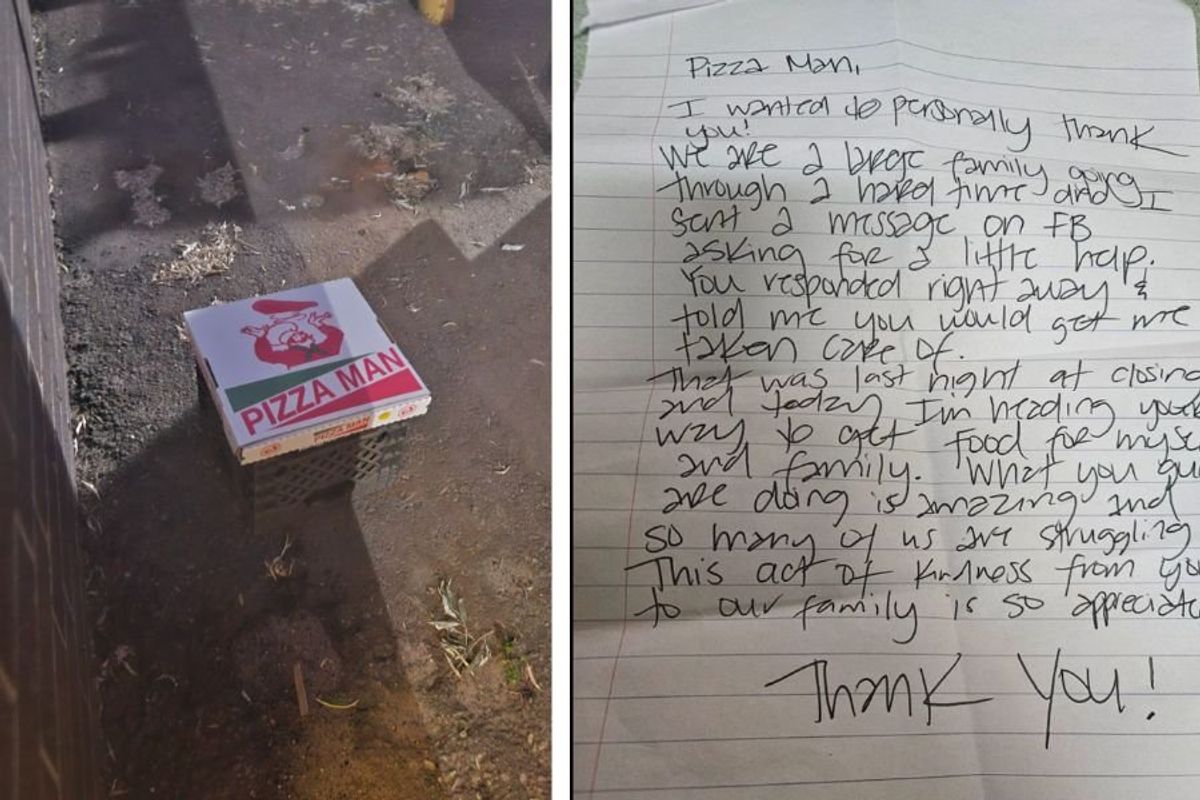 PIZZA MAN
PIZZA MAN
Pizza Man,
I wanted to personally thank
you!
We are a large family going
through a hard time and I
sent a message on FB
asking for a little help.
You responded right away &
told me you would get me
taken care of.
That was last night at closing
and today I'm heading your
way to get food for myse
and family. What you gu
are doing is amazing and
so many of us are struggling
This act of kindness from yo
to our family is so appreciat
Thank You!